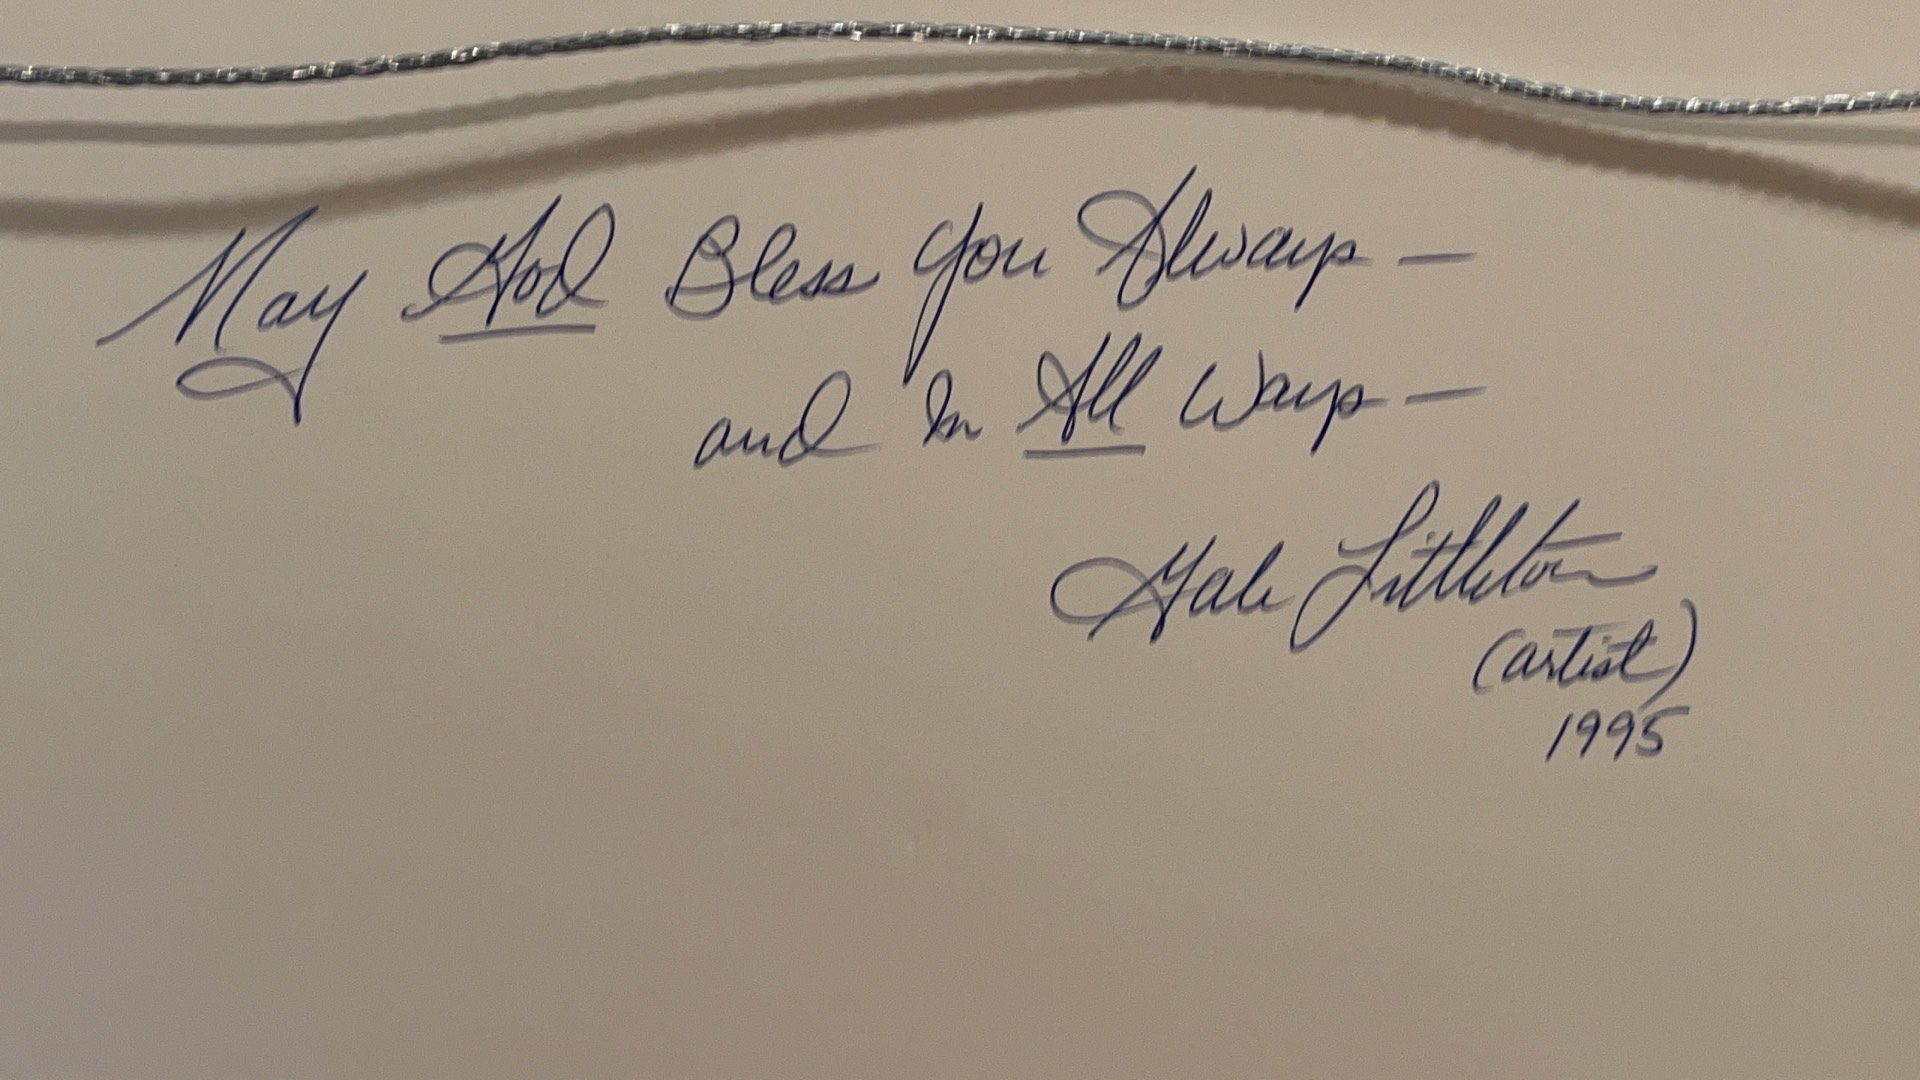 May God Bless You Always —
and In All Ways —
Gale Littleton
(artist)
1995